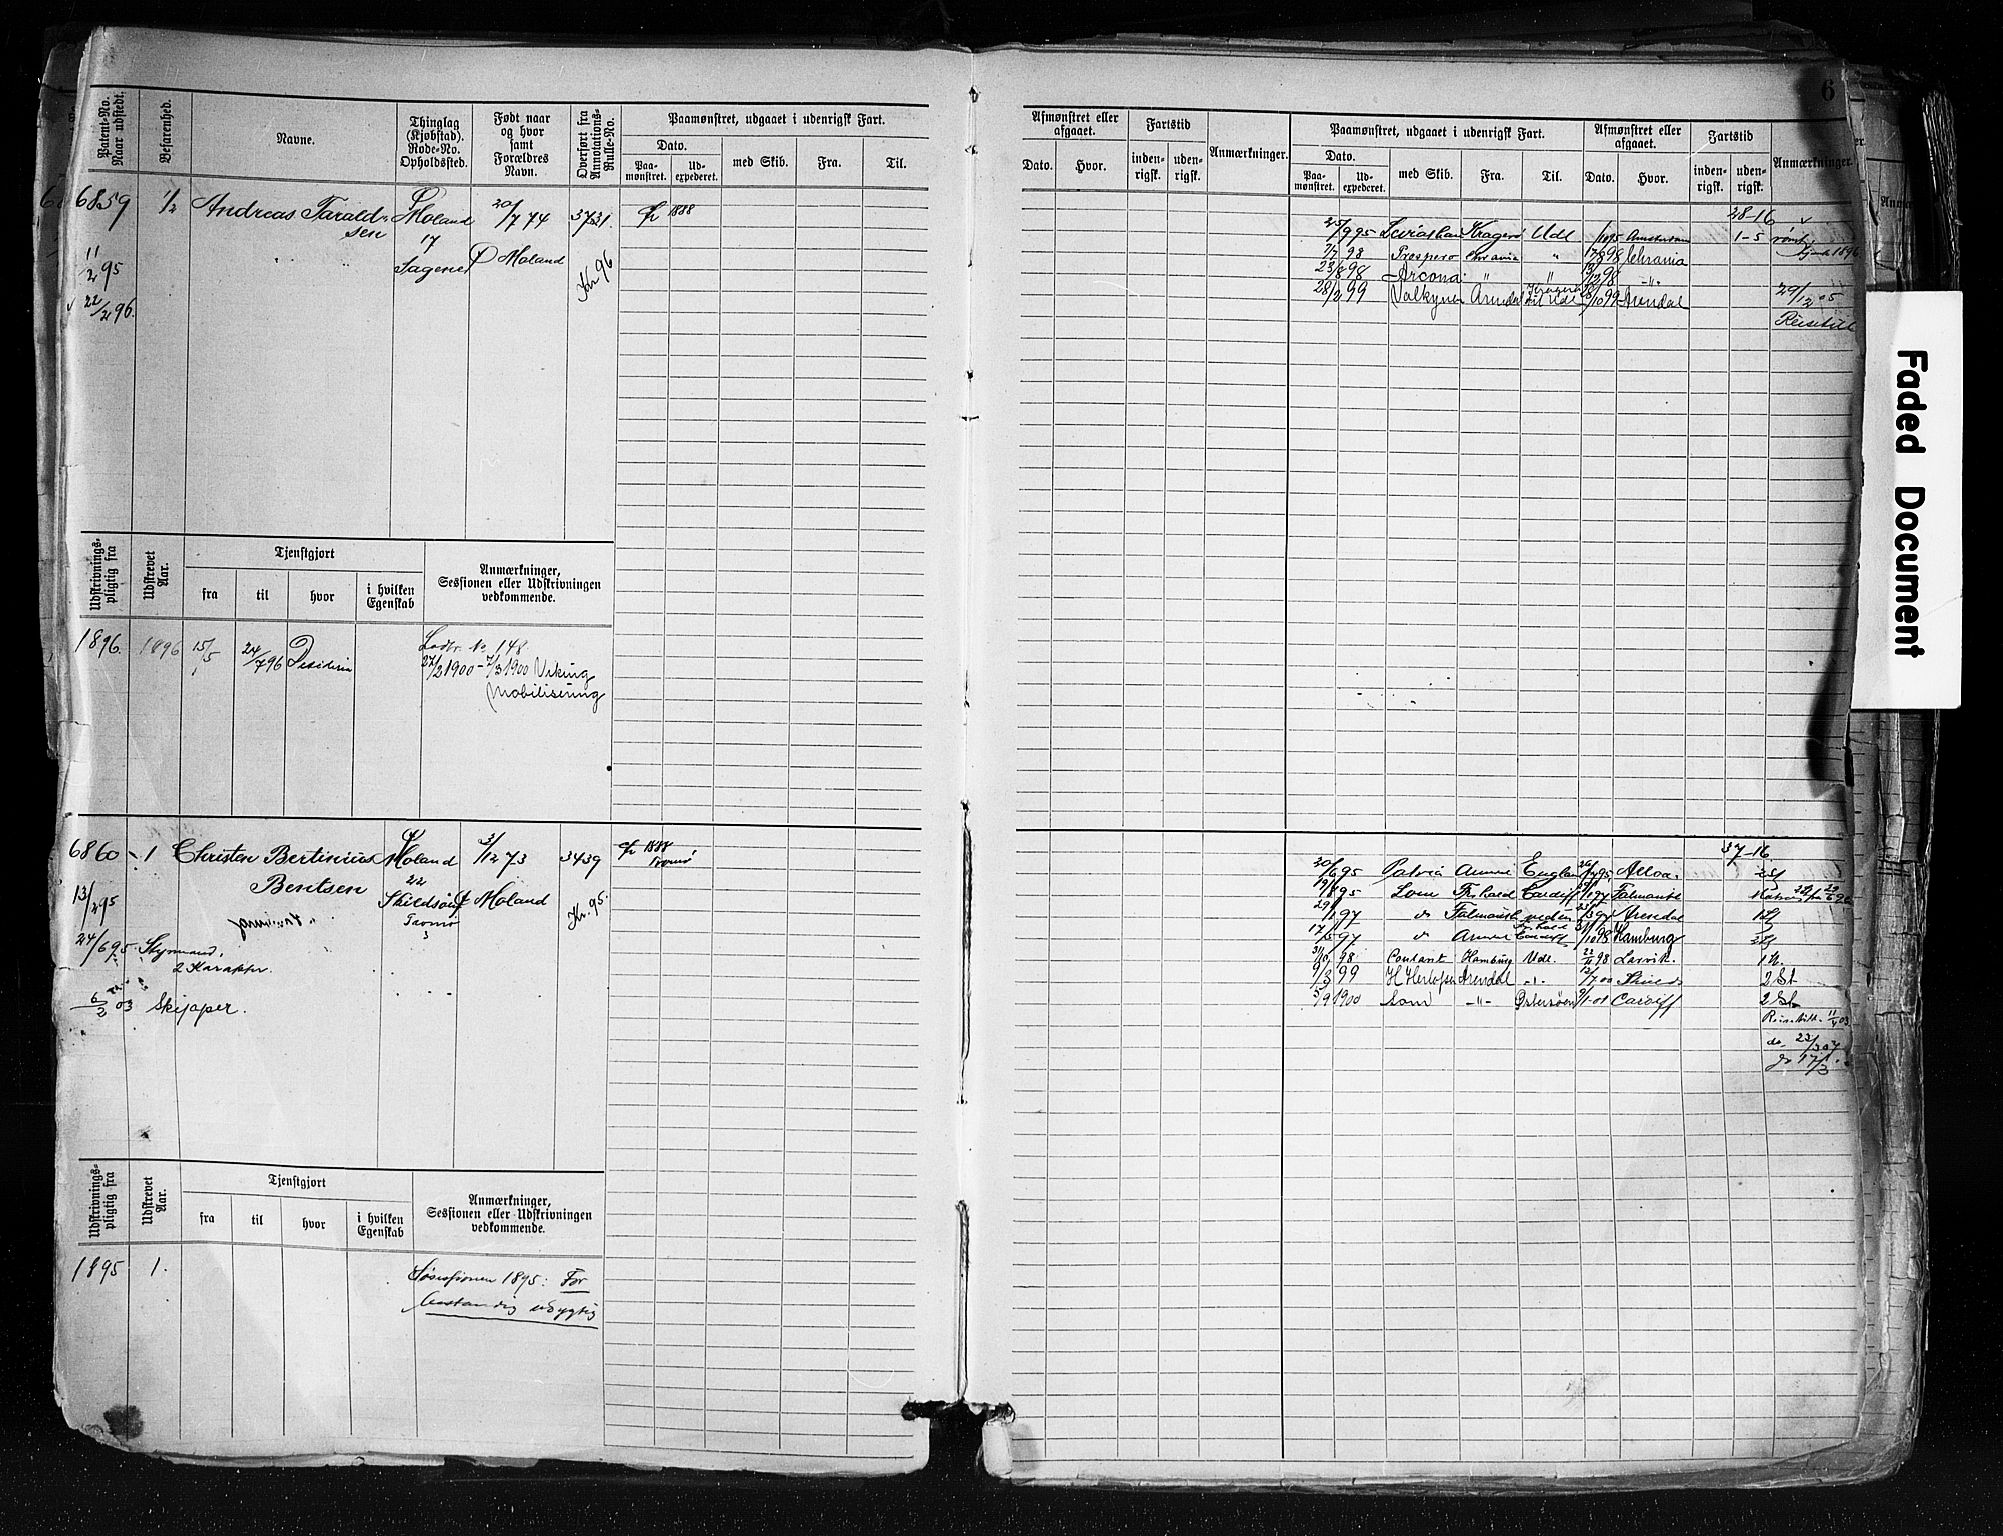 6
Patent-No.
Naar udstedt.
Befarenhed.
Navne.
Thinglag
(Kjøbstad).
Rode-No.
Opholdssted.
Født naar
og hvor
samt
Forældres
Navn.
Overført fra
Annotations-
Rulle-No.
Paamønstret, udgaaet i udenrigsk Fart.
Dato.
Paa-
mønstret.
Ud-
expederet.
med Skib.
Fra.
Til.
6859
1/2
Andreas Tarald-
sen
Moland
17
Sagene
20/7 74
Moland
3731
Kr 96
1888
11/2 95
22/2 96
Udskrivnings-
pligtig fra
Udskrevet
Aar.
Tjenstgjort
fra
til
hvor
i hvilken
Egenskab
Anmærkninger,
Sessionen eller Udskrivningen
vedkommende.
1896
1896
15/5
24/7 96
Desideria
Lodtr. No 148
27/2 1900 - 7/3 1900 Viking
Mobilisering
6860
1
Christen Bertinius
Bentsen
Moland
22
Skildsø
Tromø
3
3/12 73
Moland
3439
Kr. 95.
1888
Tromø
13/2 95
24/6 95 Styrmand,
2 Karakter.
6/2 03 Skipper.
Udskrivnings-
pligtig fra
Udskrevet
Aar.
Tjenstgjort
fra
til
hvor
i hvilken
Egenskab
Anmærkninger,
Sessionen eller Udskrivningen
vedkommende.
1895
1.
Søsessionen 1895: For
bestandig udygtig
Afmønstret eller
afgaaet.
Dato.
Hvor.
Fartstid
inden-
rigsk.
uden-
rigsk.
Anmærkninger.
Paamønstret, udgaaet i udenrigsk Fart.
Dato.
Paa-
mønstret.
Ud-
expederet.
med Skib.
Fra.
Til.
Afmønstret eller
afgaaet.
Dato.
Hvor.
Fartstid
inden-
rigsk.
uden-
rigsk.
Anmærkninger.
28-16
25/9 95 Leviathan Kragerø Udl Amsterdam 1-5
7/7 98 Prospero Chrania " 17/8 98 Chrania
23/8 98 Arcona " " 13/12 98 -"-
28/2 99 Valkyrien Arendal Kragerø til Udl /10 99 Arendal
29/12 05
Reisetill
37-16
20/6 95 Patria Arendal England 26/7 95 Alloa.
19/8 95 Lom Frhald Cardiff /1 97 Falmouth
29/1 97 do Falmouth /3 97 Arendal
17/5 97 do Arendal Frhald Cardiff /10 98 Hamburg
/10 98 Constant Hamburg Udl. 22/11 98 Larvik.
9/3 99 Arendal -"- 12/7 00 Shields 2 St
5/9 1900 Lom -"- Østersøen 9/1-01 Cardiff 2 St
Reisetill. 11/4 03
do. 23/3 04
do 17/3
Faded Document